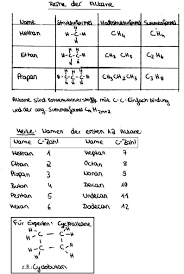 Reihe der Alkane
Name Strukturformel Halbstrukturformel Summenformel
Methan CH4 CH4
Ethan CH3 CH3 C2H6
Propan CH3 CH2 CH3 C3H8
Alkane sind Kohlenwasserstoffe mit C-C-Einfachbindung
und der allg. Summenformel CnH2n+2
Merke: Namen der ersten 12 Alkane:
Name C-Zahl Name C-Zahl
Methan 1 Heptan 7
Ethan 2 Octan 8
Propan 3 Nonan 9
Butan 4 Decan 10
Pentan 5 Undecan 11
Hexan Dodecan 12
Für Experten: Cycloalkane
z.B.: Cyclobutan